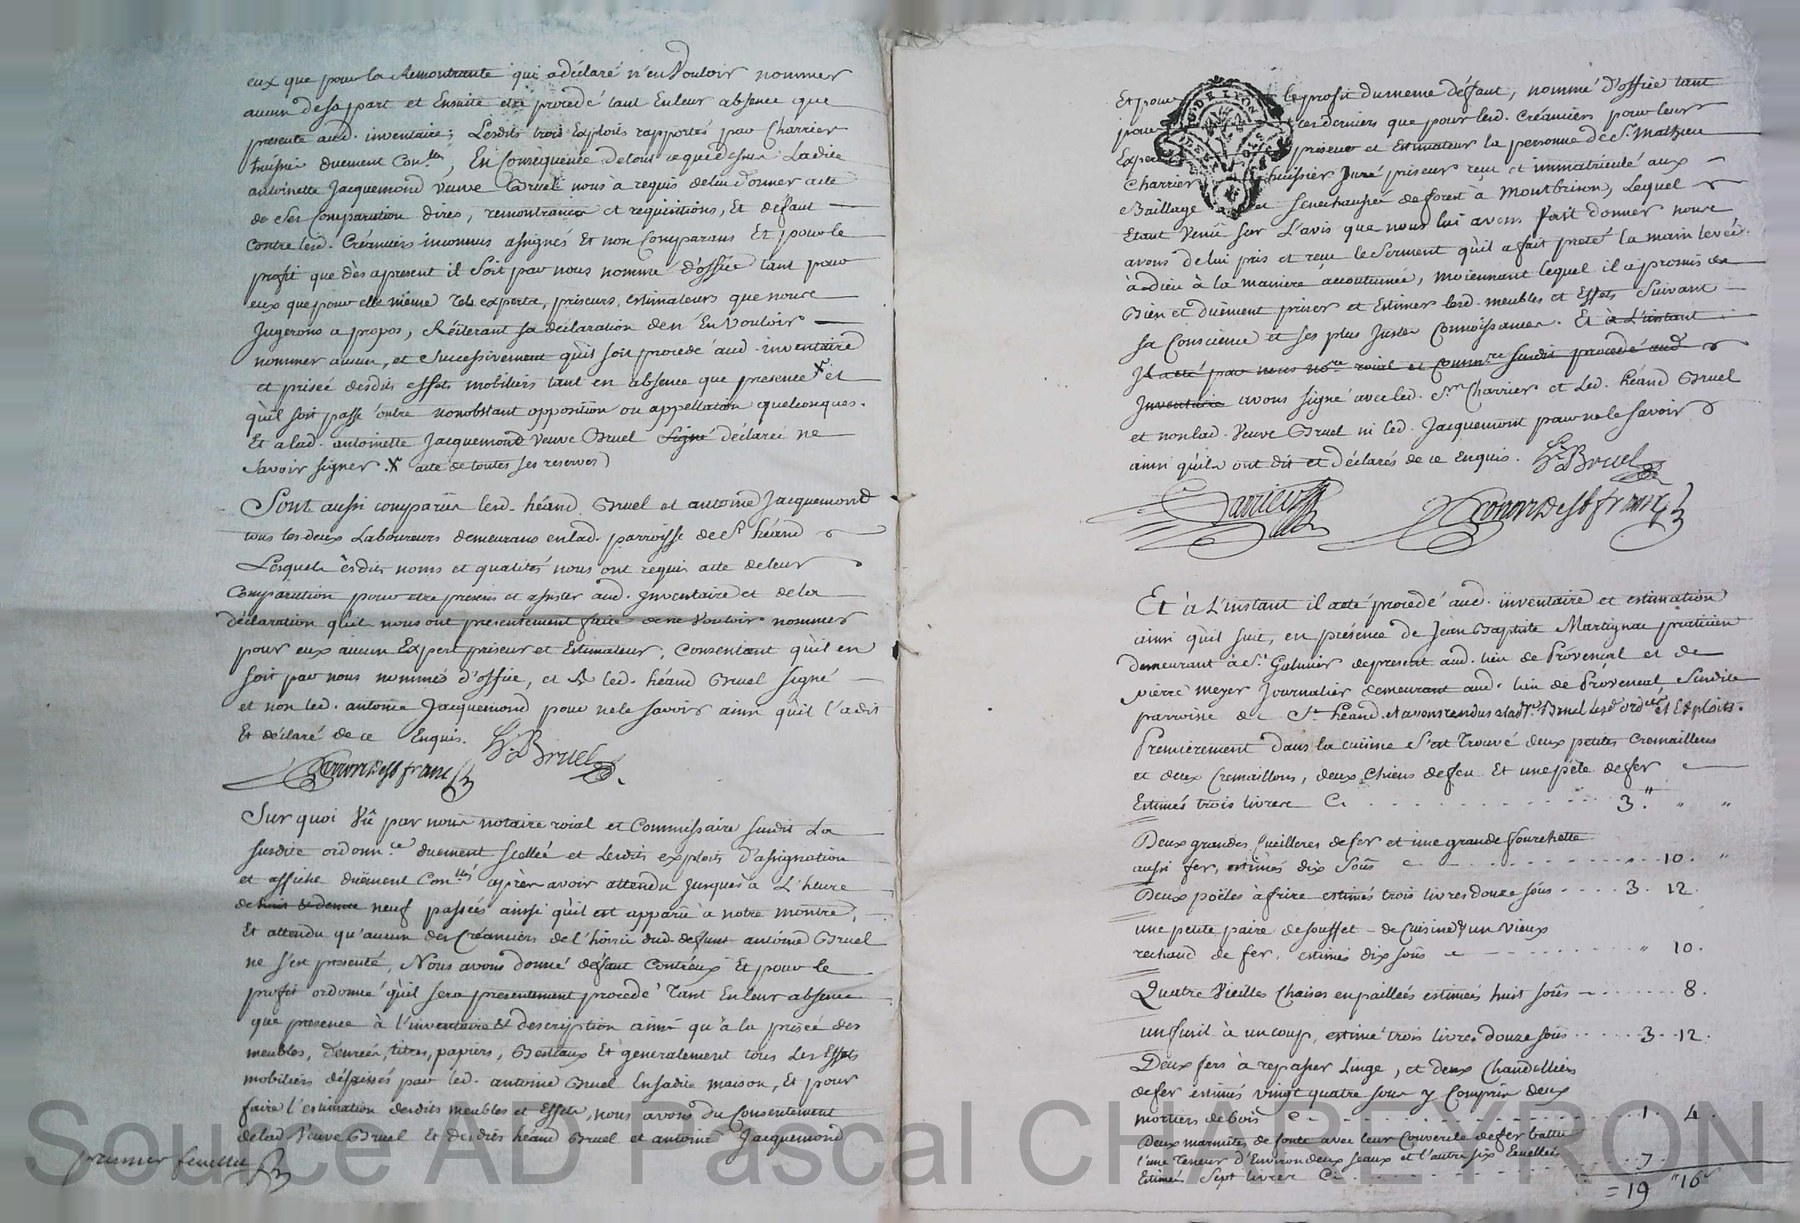 eux que pour la Remontrante qui a déclaré n'en Vouloir nommer
aucun de sa part et Ensuite etre procedé tant En leur absence que
presence aud. inventaire; Lesdits trois Exploits rapportés par Charrier
huissier duement Con.lés, En Consequence de tout ce que dessus Ladite
antoinette Jacquemond veuve Bruel nous à requis de lui donner acte
de Ses Comparution dires, remontrances et requisitions, Et defaut
Contre lesd. Créanciers inconnus assignés Et non Comparans Et pour le
profit que dès apresent il Soit par nous nommé d'office tant pour
eux que pour elle même tels experts, priseurs, estimateurs que nous
Jugerons a propos, Réïterant sa déclaration de n'En Vouloir
nommer aucun, et Successivement qu'il soit procedé aud. inventaire
et prisée desdits effets mobiliers tant en absence que presence X et
qu'il soit passé outre nonobstant opposition ou appellation quelconques.
Et a lad. antoinette Jacquemond Veuve Bruel Signé déclaré ne
savoir signer. X acte de toutes ses reserves)
Sont aussi comparus lesd. héand Bruel et antoine Jacquemond
tous les deux Laboureurs demeurans en lad. parroisse de St héand
Lesquels èsdits noms et qualités nous ont requis acte de leur
Comparution pour etre presens et assister aud. Inventaire et de la
déclaration qu'ils nous ont presentement faite de ne Vouloir nommer
pour eux aucun Expert priseur et Estimateur, Consentant qu'il en
soit par nous nommés d'office, et led. héand Bruel Signé
et non led. antoine Jacquemond pour ne le savoir ainsi qu'il l'a dit
Et déclaré de ce Enquis.
h. Bruel
Sur quoi Vû par nous notaire roial et Commissaire susdit La
susdite ordonn.ce duement scellée et Lesdits exploits d'assignation
et affiche duëment Con.lés après avoir attendu Jusques à L'heure
de huit et demie neuf passées ainsi qu'il est apparu à notre montre,
Et attendu qu'aucun des Créanciers de l'hoirie dud. deffunt antoine Bruel
ne s'en presenté, Nous avons donné défaut Contr'eux Et pour le
profit ordonné qu'il sera presentement procedé Tant En leur absence
que presence à l'inventaire & description ainsi qu'à la prisée des
meubles, denrées, titres, papiers, Bestiaux Et generalement tous les Effets
mobiliers délaissés par led. antoine Bruel En sadite maison, Et pour
faire l'estimation desdits meubles et Effets, nous avons du Consentement
de lad. Veuve Bruel Et desdits héand Bruel et antoine Jacquemond
premier feuillet
Et pour le profit du meme défaut, nommé d'office tant
pour ces derniers que pour lesd. Créanciers pour leur
Expert priseur et Estimateur la personne de Sr. Mathieu
Charrier huissier Juré priseur reçu et immatriculé aux
Baillage et Senechaussée de forest à Montbrison, Lequel
Etant Venû sur L'avis que nous lui avons fait donner nous
avons de lui pris et reçu le Serment qu'il a fait preté la main levée
à dieu à la maniere accoutumée, moiennant lequel il a promis de
Bien et duëment priser et Estimer lesd. meubles et Effets Suivant
sa Conscience et ses plus Justes Connoissances. Et à L'instant
Il a eté par nous no.re roial et Comm.re susdit procedé aud.
Inventaire avons signé avec led. Sr. Charrier et Led. héand Bruel
et non lad. Veuve Bruel ni led. Jacquemont pour ne le savoir
ainsi qu'ils ont dit et déclarés de ce Enquis.
h. Bruel
Charrier
Et à L'instant il a eté procedé aud. inventaire et estimation
ainsi qu'il suit, en présence de Jean Baptiste Martignac praticien
demeurant à St. Galmier de present aud. lieu de Provencal et de
pierre meyer Journalier demeurant aud. lieu de Provencal, susdite
parroisse de St. héand. et avons rendus a lad. Ve. Bruel lesd. ord.ce et Exploits.
Premièrement dans la cuisine s'est Trouvé deux petites Cremailleres
et deux Cremaillons, deux Chiens de feu Et une pèle de fer
Estimés trois livres Cy . . . 3. " "
Deux grandes Cueilleres de fer et une grande fourchette
aussi fer, estimés dix Sous Cy . . . 10. "
Deux poëles à frire estimés trois livres douze sous . . . 3. 12.
une petite paire de soufflet de Cuisine & un Vieux
rechaud de fer, estimés dix sous Cy . . . " 10.
Quatre Vieilles Chaises empaillées estimées huit sous . . . 8.
un fusil à un coup, estimé trois livres douze sous . . . 3. 12.
Deux fers à repasser Linge, et deux Chandelliers
de fer estimés vingt quatre sous y Compris deux
mortiers de bois Cy . . . 1. 4.
Deux marmites de fonte avec leur Couvercle de fer battu
l'une teneur d'Environ deux seaux et l'autre six Ecuelles
Estimés Sept livres Cy . . . 7
= 19 " 16
Source AD Pascal CHAREYRON